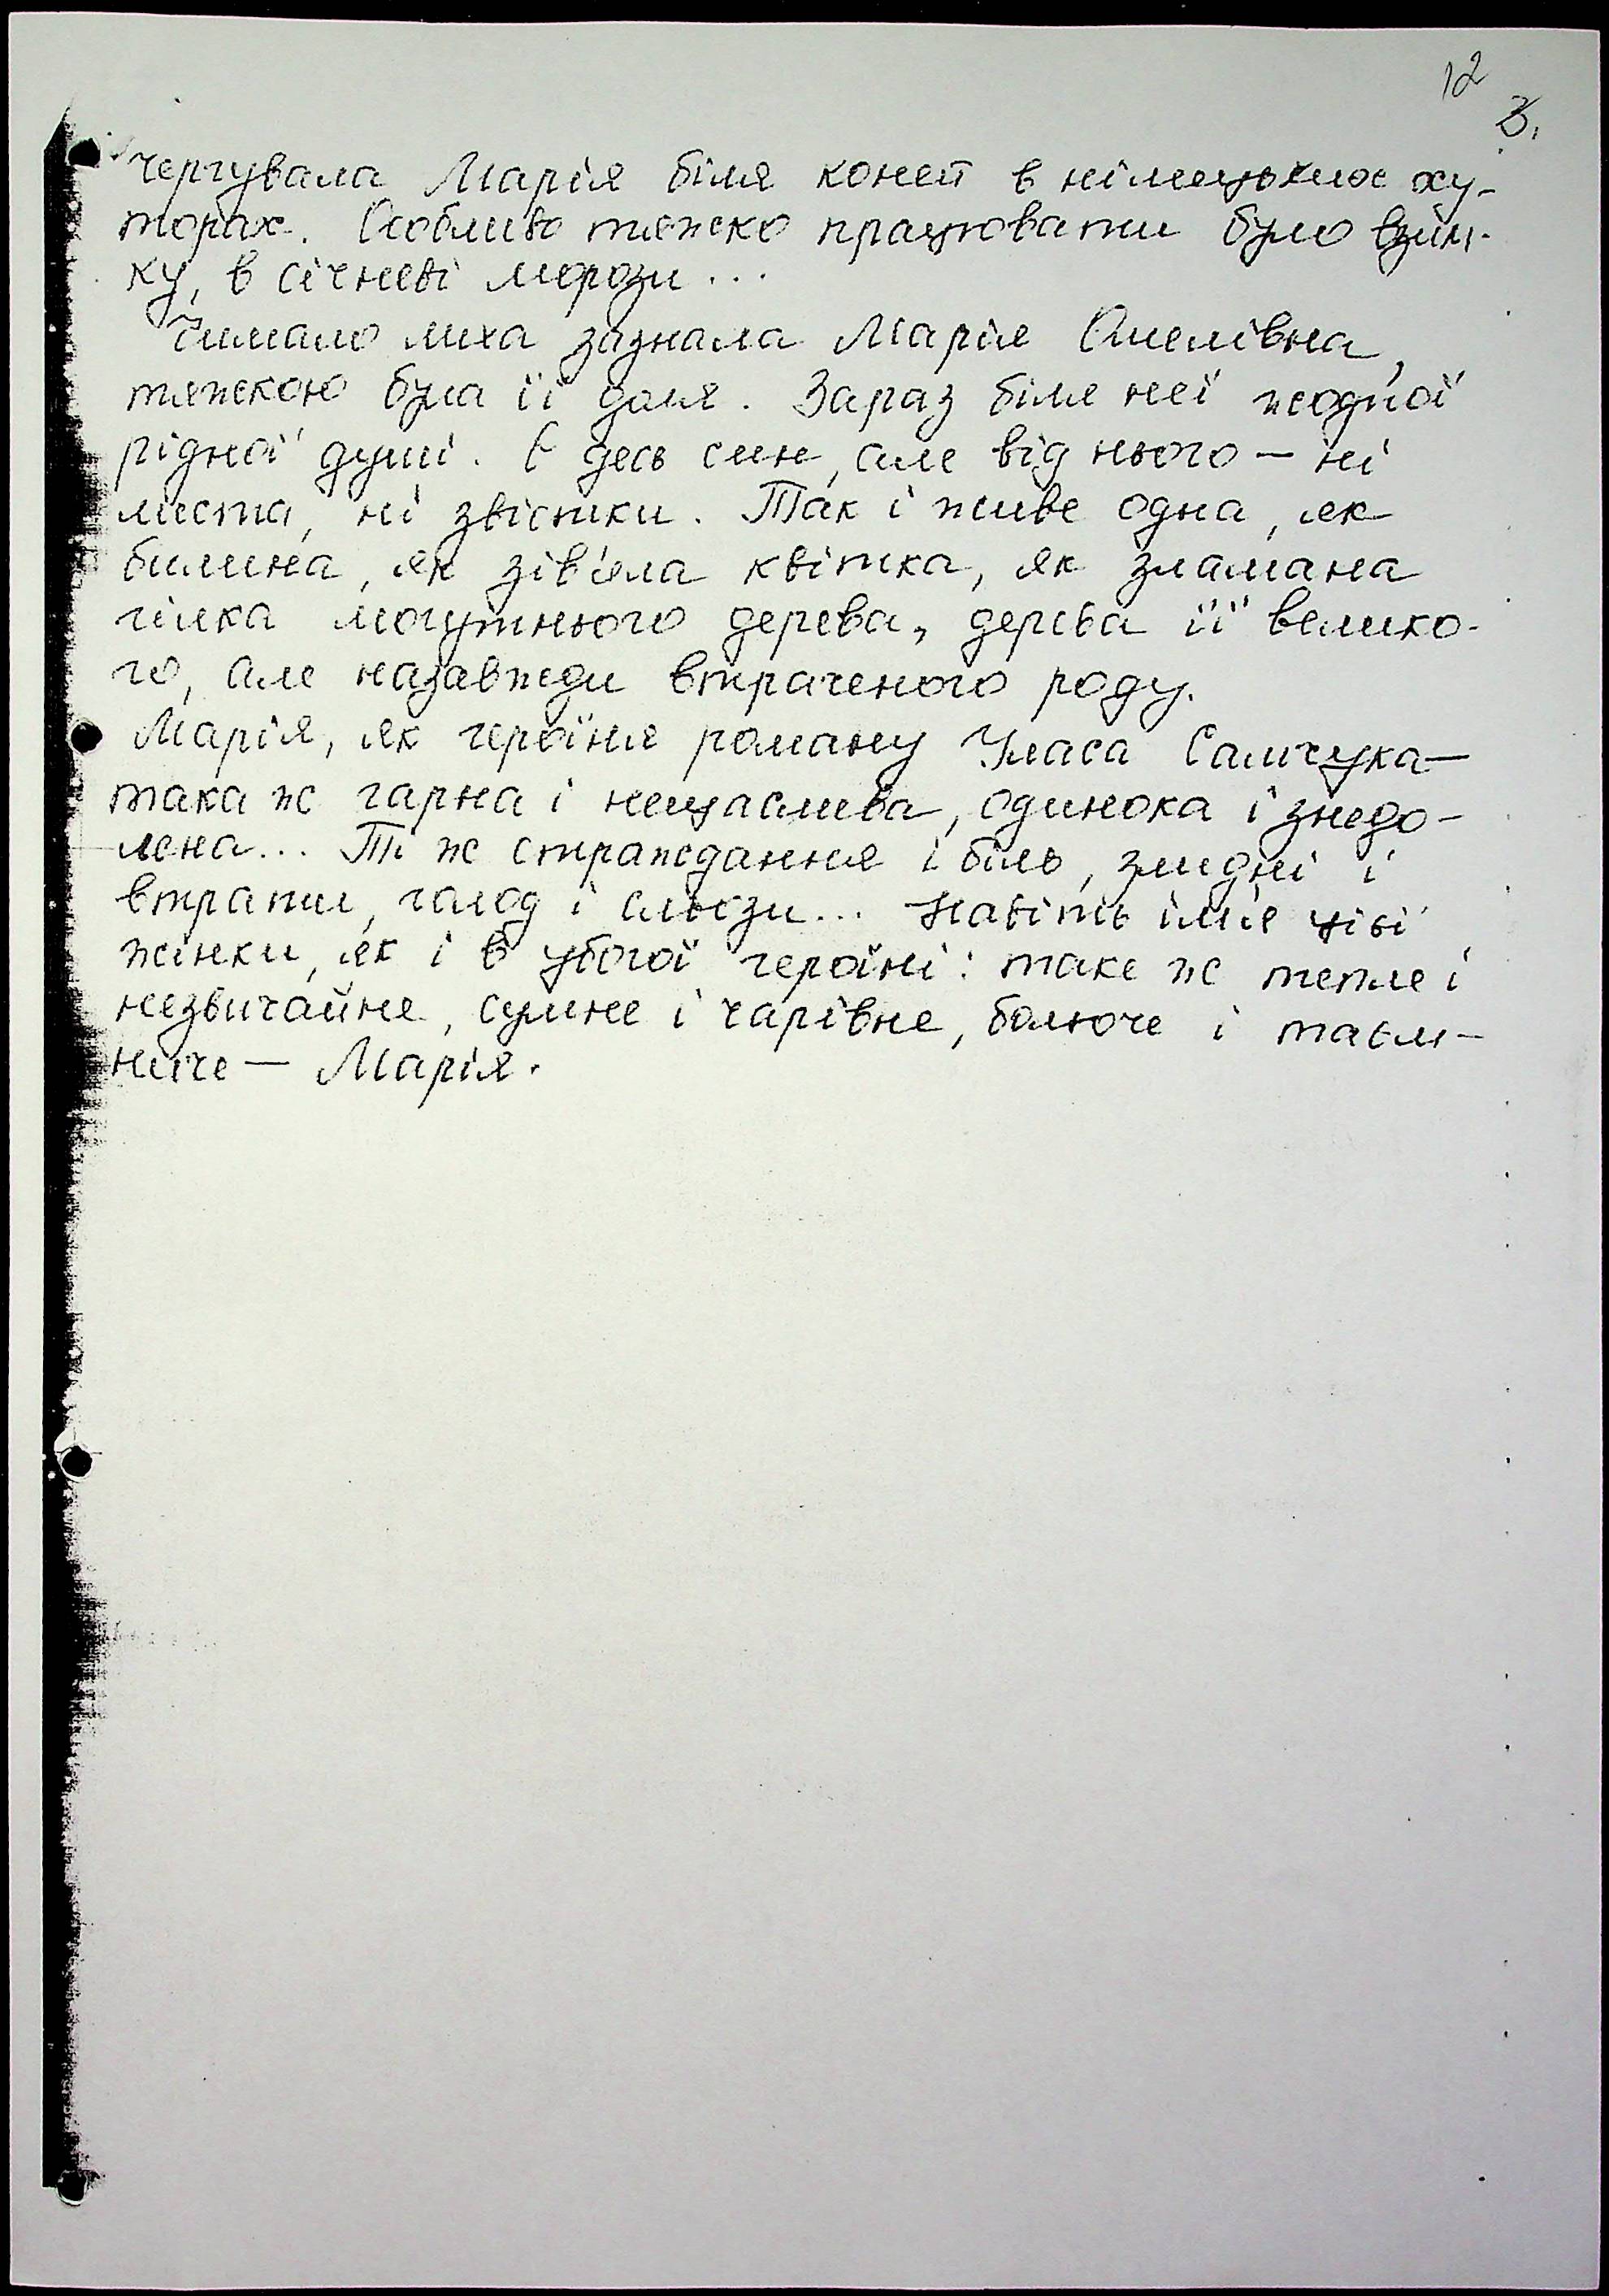 12
3.
чергувала Марія біля коней в німецьких ху-
торах. Особливо тяжко працювати було взим-
ку, в січневі морози...
Чимало лиха зазнала Марія Омелівна,
тяжкою була її доля. Зараз біля неї жодної
рідної душі. Є десь син, але від нього — ні
листа, ні звістки. Так і живе одна, як
билина, як зів'яла квітка, як зламана
гілка могутнього дерева, дерева її велико-
го, але назавжди втраченого роду.
Марія, як героїня роману Уласа Самчука —
така ж гарна і нещаслива, одинока і знедо-
лена... Ті ж страждання і біль, злидні і
втрати, голод і сльози... Навіть ім'я цієї
жінки, як і в убогої героїні: таке ж тепле і
незвичайне, сумне і чарівне, болюче і таєм-
ниче — Марія.